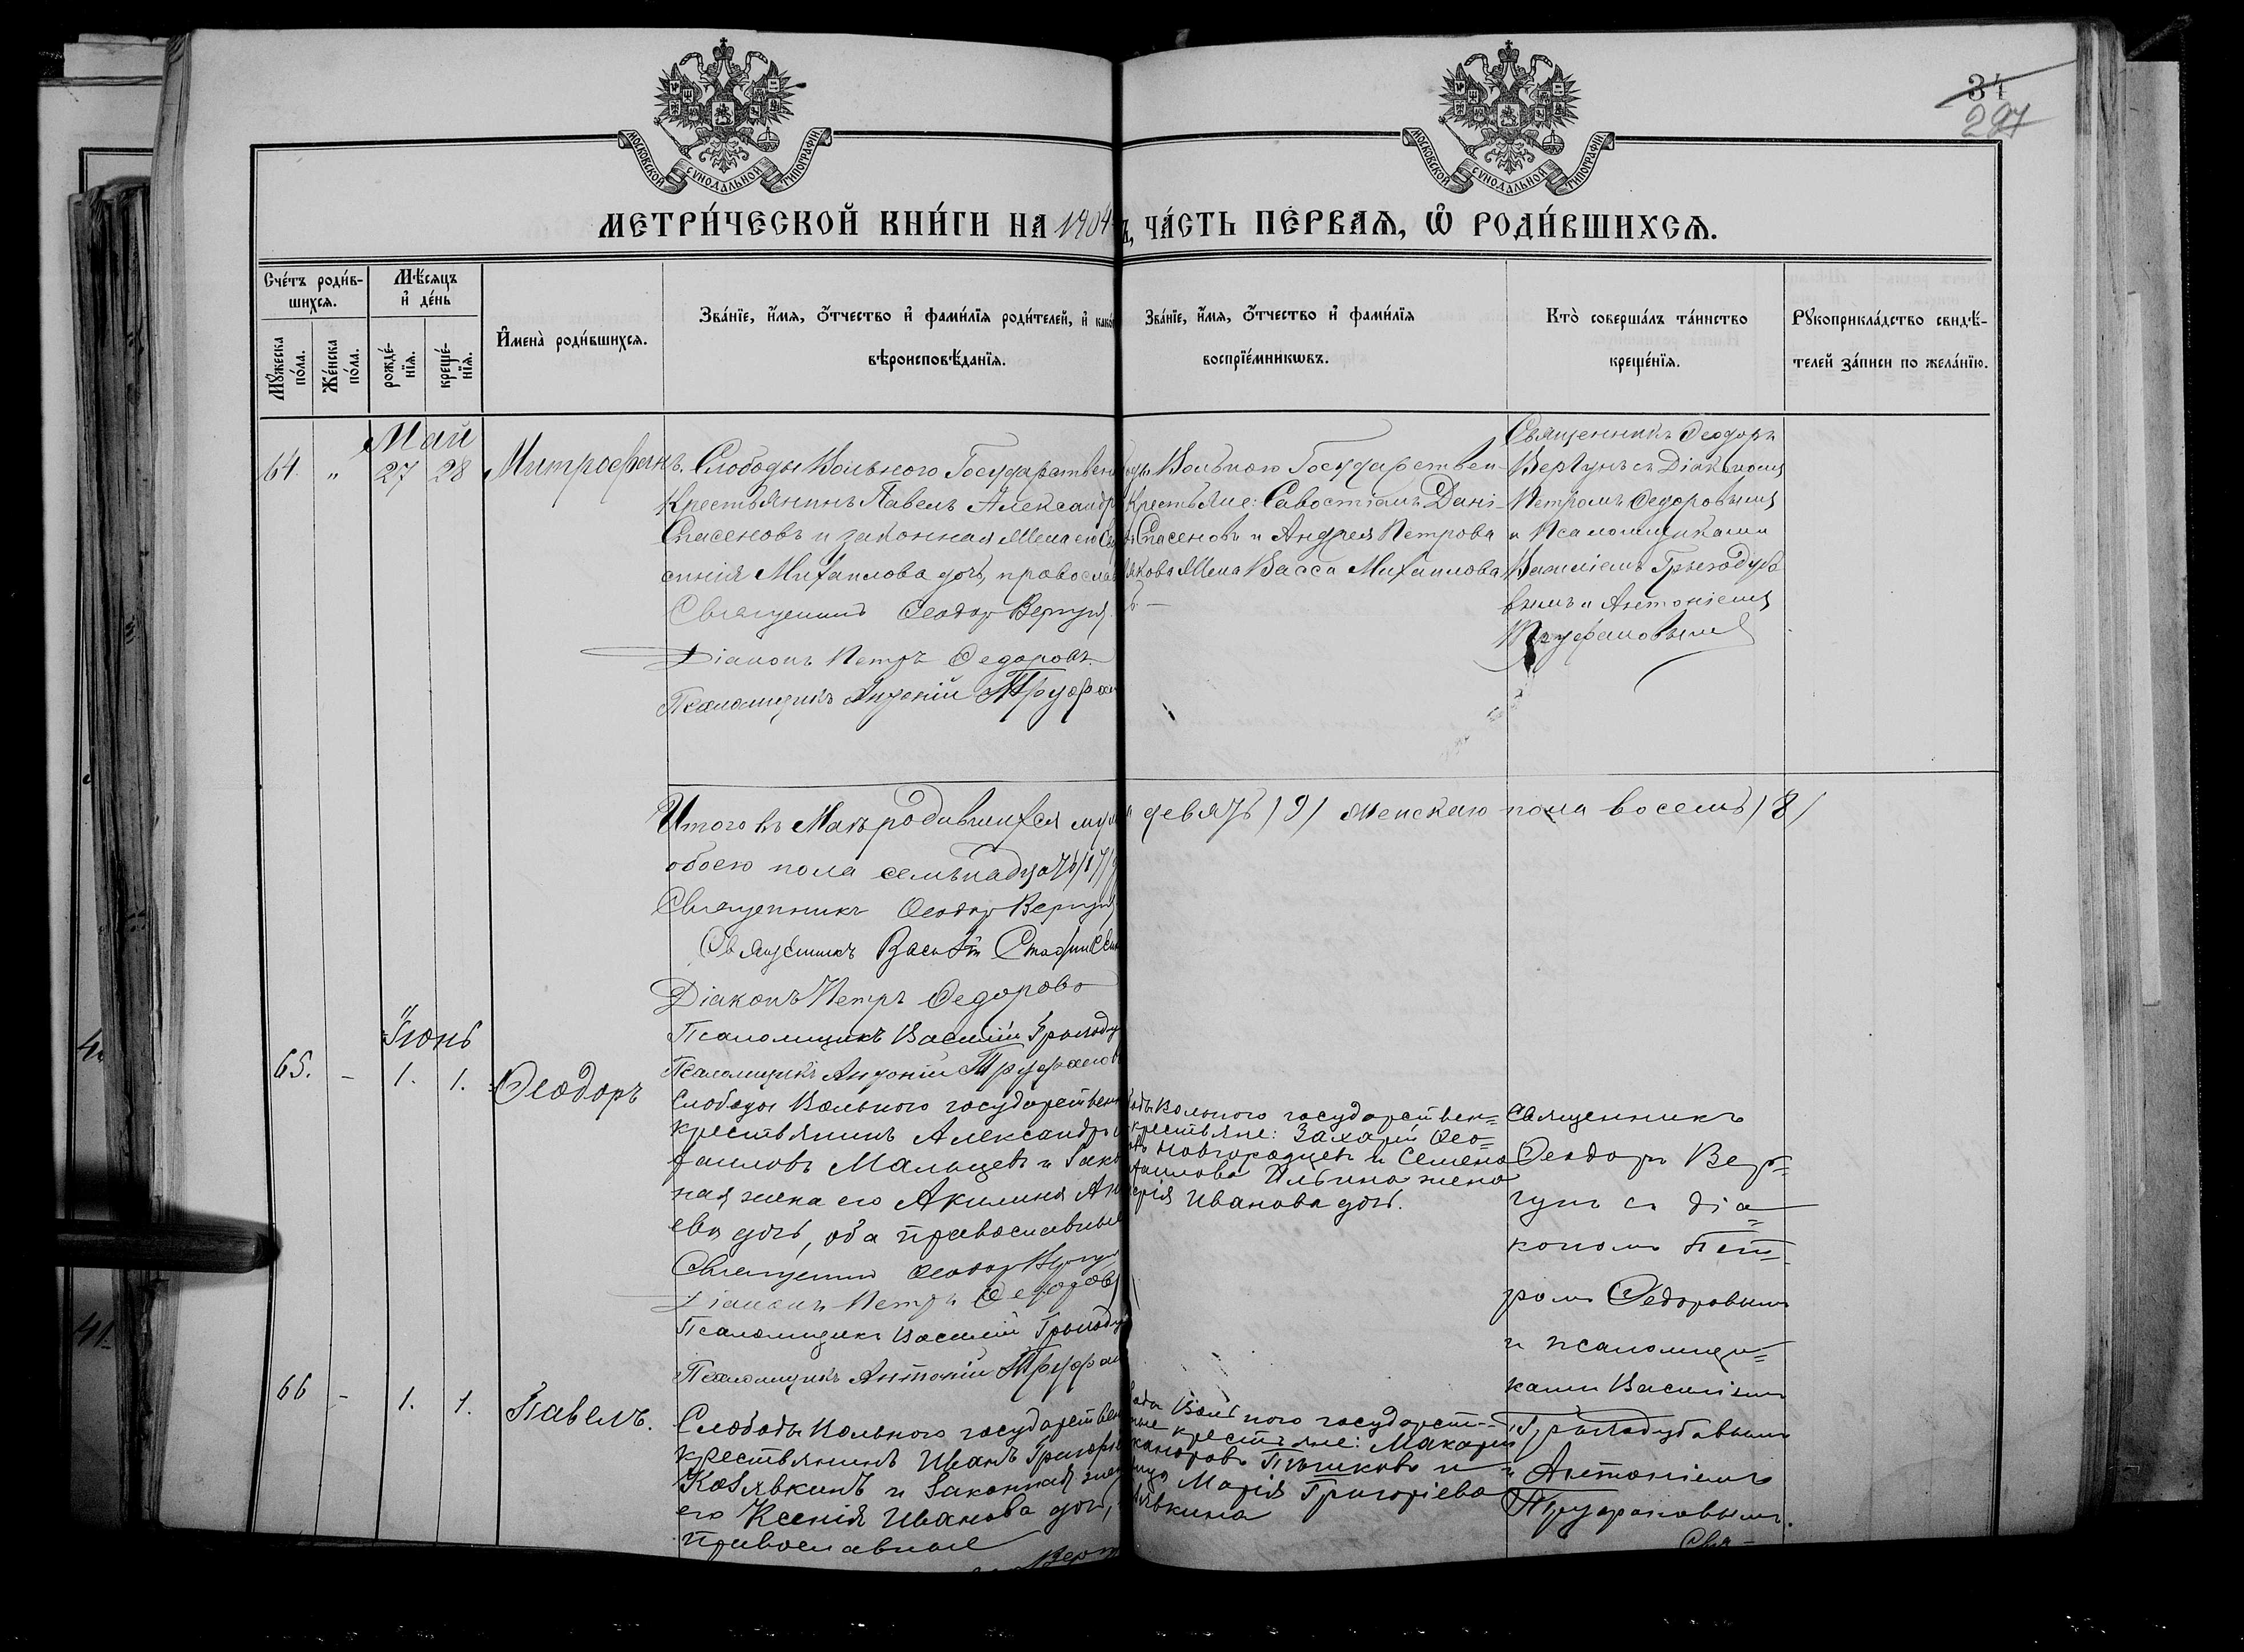 34
297
МОСКОВСКОЙ СУНОДАЛЬНОЙ ТИПОГРАФІИ
МОСКОВСКОЙ СУНОДАЛЬНОЙ ТИПОГРАФІИ
МЕТРИ́ЧЕСКОЙ КНИ́ГИ НА 1904 ЧА́СТЬ ПЕ́РВАѦ, Ѡ҆ РОДИ́ВШИХСѦ.
Сче́тъ роди́в-
шихсѧ.
Мѣ́сѧцъ
и҆ де́нь
Мꙋ́жеска
по́ла.
Же́нска
по́ла.
рожде́-
нїѧ.
креще́-
нїѧ.
И҆мена̀ роди́вшихсѧ.
Зва́нїе, и҆́мѧ, ѻ҆́тчество и҆ фами́лїѧ роди́телей, и҆
вѣроисповѣ́данїѧ.
Зва́нїе, и҆́мѧ, ѻ҆́тчество и҆ фами́лїѧ
воспрїе́мникѡвъ.
Кто̀ соверша́лъ та́инство
креще́нїѧ.
Рꙋкоприкла́дство свидѣ́-
телей за́писи по жела́нїю.
Май
64. " 27 28 Митрофанъ.
Слободы Вольнаго Государствен
Крестьянинъ Павелъ Александр
Спасеновъ и законная жена его
Михаилова дочь, православ
Священникъ Феодор Вергун
Діаконъ Петръ Федоровъ
Псаломщикъ Антоній Труфан
Вольнаго Государствен-
Крестьяне: Савостіанъ Дані-
Спасеновъ и Андрея Петрова
жена Васса Михаилова
Священникъ Феодоръ
Вергунъ съ Діакономъ
Петромъ Федоровымъ
и Псаломщиками
Василіемъ Грыгодубо
вымъ и Антоніемъ
Труфановымъ
Итого въ Маѣ родившихся муж
девять /9/ женскаго пола восемь /8/
обоего пола семьнадцать /17/
Священникъ Феодор Вергун
Священникъ Василій
Діаконъ Петръ Федоровъ
Псаломщикъ Василій
Псаломщикъ Антоній Труфанов
Іюнь
65. - 1. 1. Феодоръ
Слободы Вольнаго государствен
крестьянинъ Александръ
фаиловъ Мальцевъ и зак
ная жена его Акилина
ева дочь, оба православные
Священникъ Феодор Вергун
Діаконъ Петръ Федоров
Псаломщикъ Василій
Псаломщикъ Антоній Труфан
Вольнаго государствен=
крестьяне: Захарій Фео=
Новгородцевъ и Семена
Ильина жена
Иванова дочь.
Священникъ
Феодоръ Вер=
гунъ съ діа=
кономъ Пет=
ромъ Федоровымъ
и псаломщи=
ками Василіемъ
Грыгодубовымъ
и Антоніемъ
Труфановымъ.
66 - 1. 1. Павелъ.
Слободы Вольнаго государствен
крестьянинъ Иванъ Григорь
Козявкинъ и законная жен
его Ксенія Иванова дочь,
православные
Вольнаго государст-
крестьяне: Макарій
Пѣшковъ и
Марія Григоріева
явкина